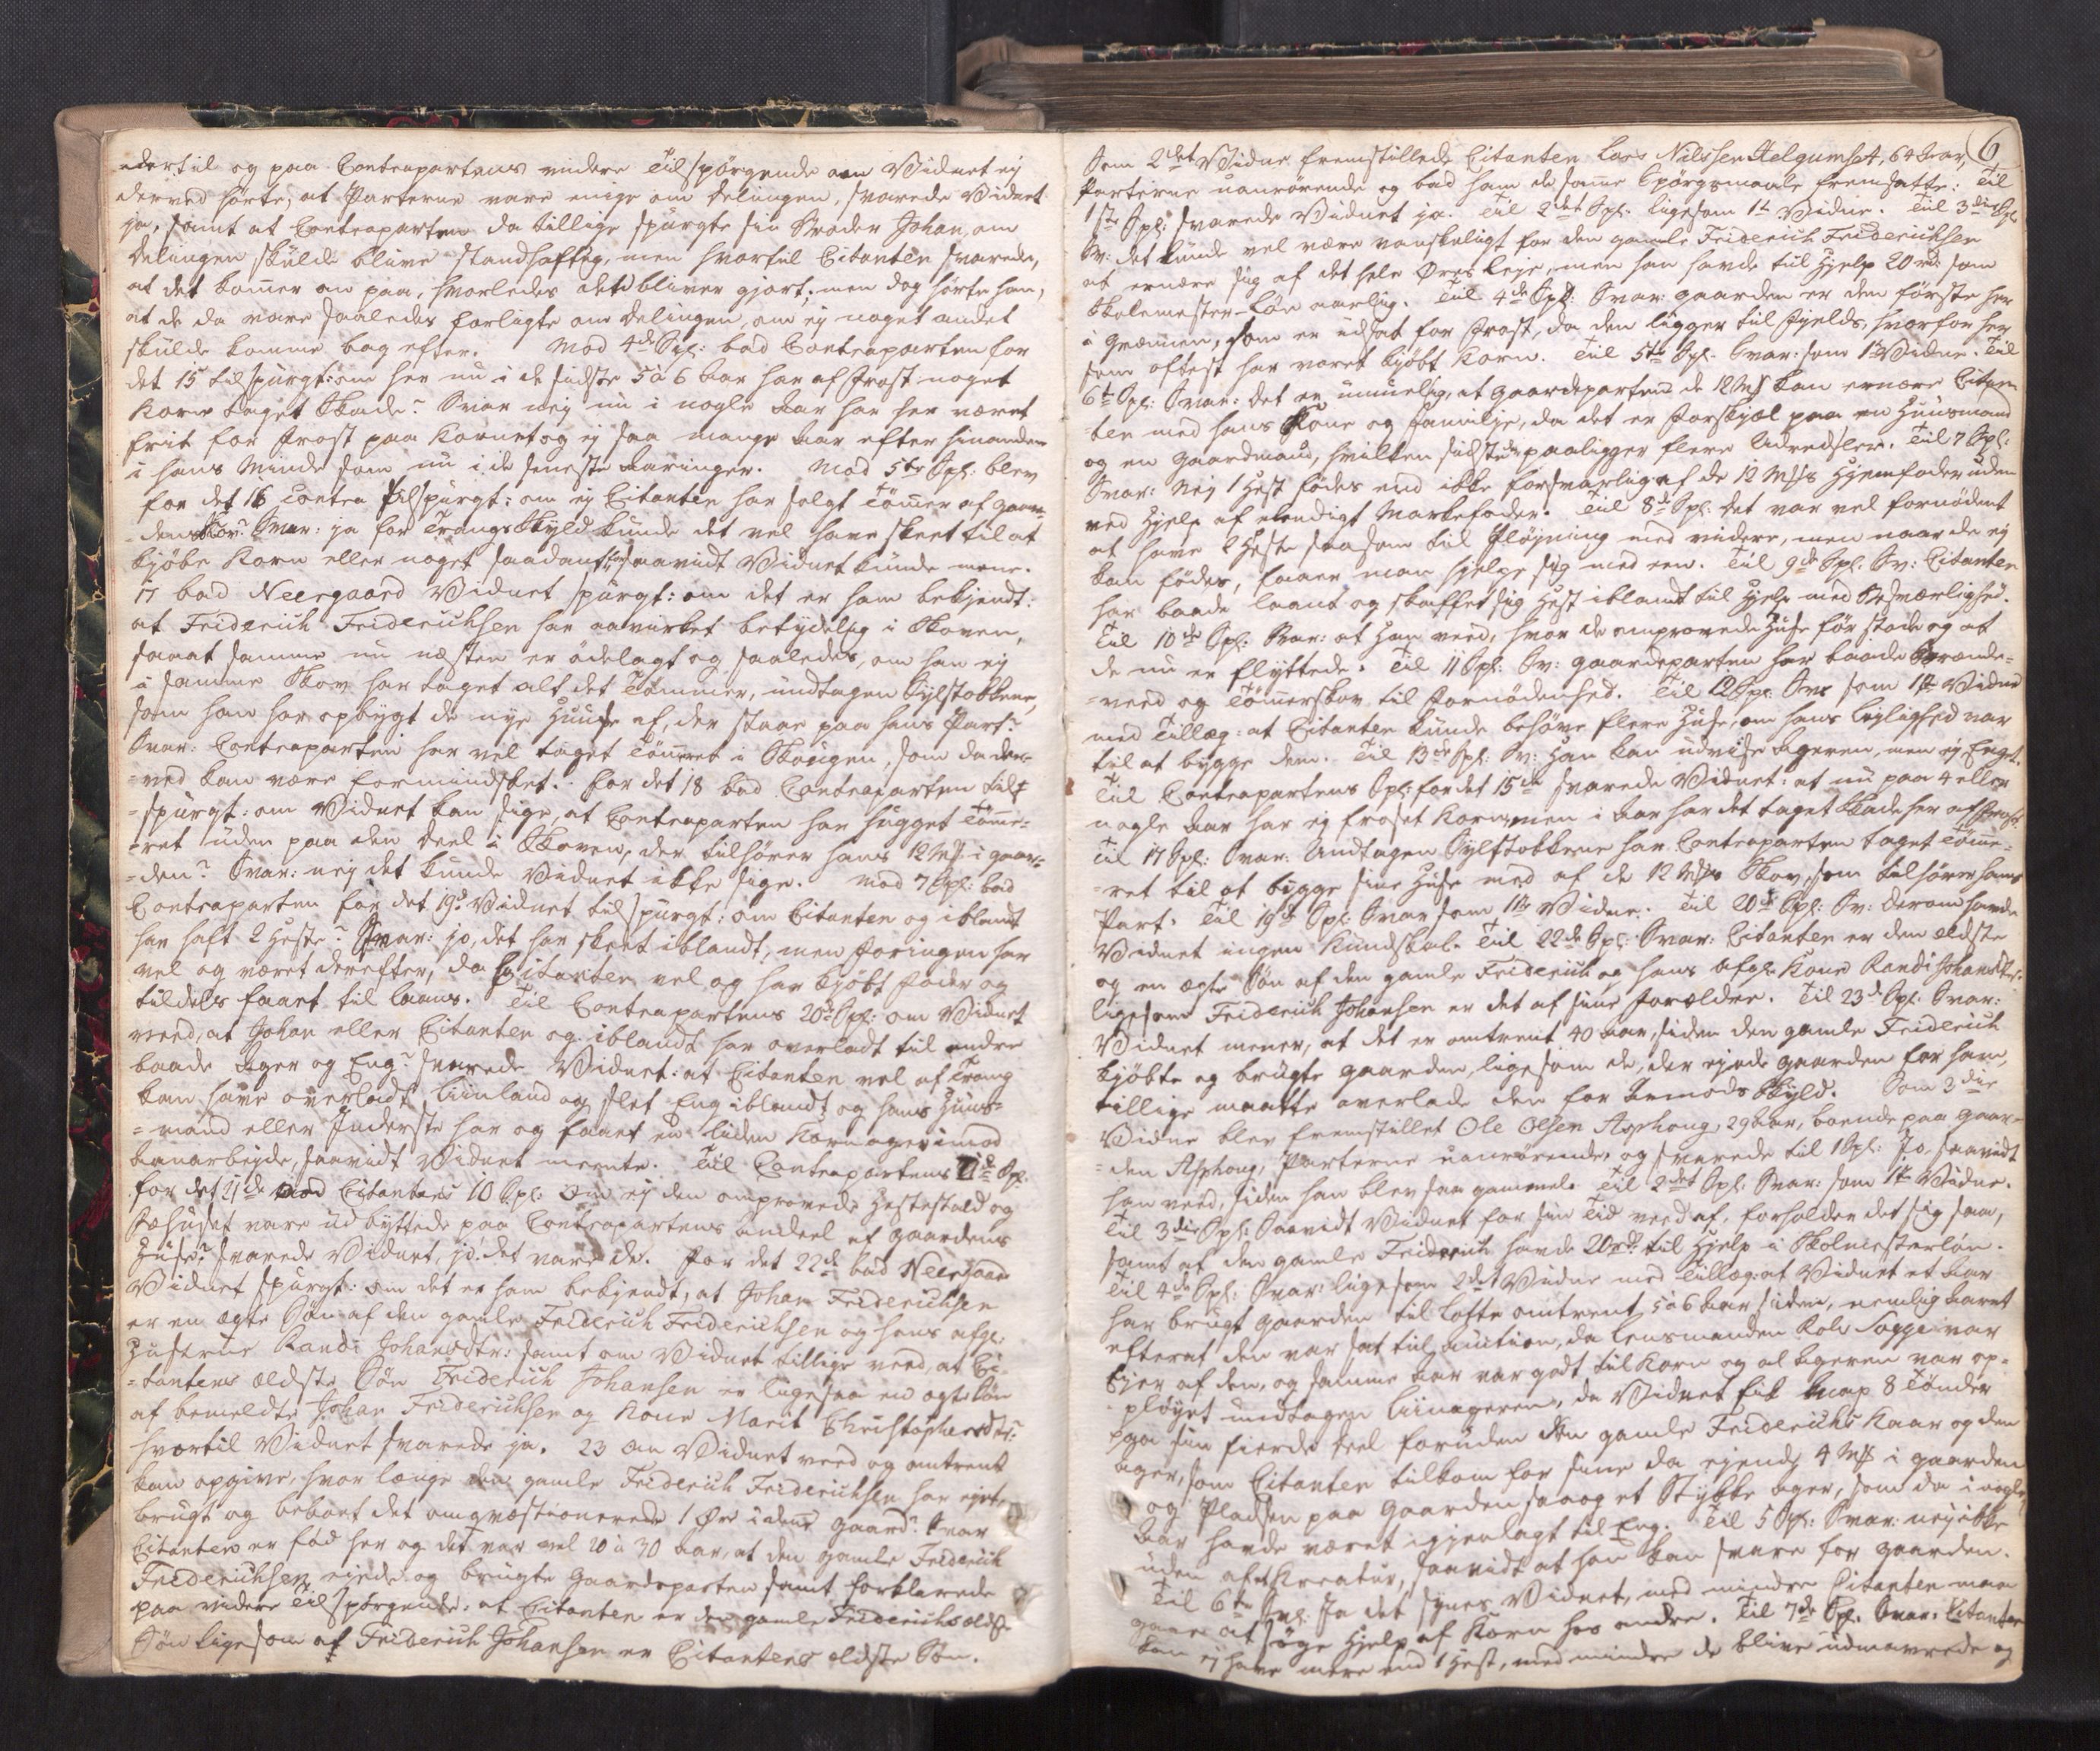 dertil og paa Contrapartens videre Tilspørgende om Vidnet ej
derved hørte, at Parterne vare enige om Delingen, svarede Vidnet
ja, samt at Contraparten da tillige spurgte sin Broder Johan, om
Delingen skulde blive standhaftig, men hvortil Citanten svarede,
at det kommer an paa, hvorledes det bliver gjort; men dog hørte han,
at de da vare saaledes forligte om Delingen, om ej noget andet
skulde komme bag efter. Mod 4de Spl: bad Contraparten for
det 15 tilspurgt: om her nu i de sidste 5 á 6 Aar har af Frost noget
Korn taget Skade? Svar nej nu i nogle Aar har her været
frit for Frost paa Kornet og ej saa mange Aar efter hinanden
i hans Minde som nu i de seneste Aaringer. Mod 5te Spl: blev
for det 16 Contra tilspurgt: om ej Citanten har solgt Tømmer af Gaar-
dens Skov? Svar: ja for Trangs Skyld kunde det vel have skeet til at
kjøbe Korn eller noget saadant for saavidt Vidnet kunde mene.
17 bad Neergaard Vidnet spurgt: om det er ham bekjendt:
at Friderich Friderichsen har aavirket betydelig i Skoven,
saaat samme nu næsten er ødelagt og saaledes, om han ej
i samme Skov har taget alt det Tømmer, undtagen Sylstokkene,
som han har opbygt de nye Huuse af, der staae paa hans Part?
Svar: Contraparten har vel taget Tømmeret i Skougen, som da der-
=ved kan være formindsket. For det 18 bad Contraparten tilf
=spurgt: om Vidnet kan sige, at Contraparten har hugget Tømme=
=ret uden paa den Deel i Skoven, der tilhører hans 12 Mk i Gaar=
=den? Svar: nej det kunde Vidnet ikke sige. Mod 7 Spl: bad
Contraparten for det 19d Vidnet tilspurgt: om Citanten og iblandt
har haft 2 Heste? Svar: jo, det har skeet iblandt, men Foringen har
vel og været derefter, da Citanten vel og har kjøbt Foder og
tildels faaet til Laans. Til Contrapartens 20de Spl: om Vidnet
veed, at Johan eller Citanten og iblandt har overladt til andre
baade Ager og Eng? svarede Vidnet: at Citanten vel af Trang
kan have overladt Liinland og slet Eng iblandt og hans Huus=
=mand eller Inderste har og faaet en liden Kornager imod
Aanarbeide, saavidt Vidnet meente. Til Contrapartens Spl:
for det 21de mod Citantens 10 Spl: om ej den omprovede Hestestald og
Fæhuset vare udbyttede paa Contrapartens Andeel af Gaardens
Huse? svarede Vidnet, jo! det vare de. For det 22de bad Neergaard
Vidnet spurgt: om det er ham bekjendt, at Johan Friderichsen
er en ægte Søn af den gamle Friderich Friderichsen og hans afg:
Hustrue Randi Johansdtr: samt om Vidnet tillige veed, at Ci-
=tantens ældste Søn Friderich Johansen er ligesaa en ægte Søn
af bemeldte Johan Friderichsen og Kone Marit Christophersdtr?
hvortil Vidnet svarede ja. 23 om Vidnet veed og omtrent
kan opgive, hvor længe den gamle Friderich Friderichsen har ejet,
brugt og beboet det omqvæstionerede 1 Øre i denne Gaard? Svar
Citanten er fød her og det var vel 20 á 30 Aar, at den gamle Friderich
Friderichsen ejede og brugte Gaardsparten samt forklarede
paa videre Tilspørgende: at Citanten er den gamle Friderichs eldste
Søn ligesom af Friderich Johansen er Citantens eldste Søn.
6
Som 2det Vidne fremstillede Citanten Lars Nilssen Helgumset, 64 Aar,
Parterne uanrørende og bad ham de samme Spørgsmaale fremsatte: Til
1ste Spl: svarede Vidnet ja. Til 2det Spl: ligesom 1te Vidne. Til 3die Spl:
Sv: det kunde vel være vanskeligt for den gamle Friderich Friderichsen
at ernære sig af det hele Øres Leje, men han havde til Hjelp 20 rd: som
Skolemester-Løn aarlig. Til 4de Spl: Svar: Gaarden er den første her
i Grænnen, som er udsat for Frost, da den ligger til Fjelds, hvorfor her
som oftest har været kjøbt Korn. Til 5te Spl: Svar: som 1te Vidne. Til
6te Spl: Svar: det er umuelig, at Gaardeparten de 12 Mk kan ernære Citan-
ten med hans Kone og Familje, da det er Forskjæl paa en Huusmand
og en Gaardmand, hvilken sidste paaligger flere Udredsler. Til 7 Spl:
Svar: Nej 1 Hest fødes end ikke forsvarlig af de 12 Mks Hjemfoder uden
ved Hjelp af elendigt Markefoder. Til 8de Spl: det var vel fornødent
at have 2 Heste saasom til Pløjning med videre, men naar de ej
kan fødes, faaer man hjelpe sig med een. Til 9de Spl: Sv: Citanten
har baade laant og skaffet sig Hest iblandt til Hjelp med Besværlighed.
Til 10de Spl: Svar: at han veed, hvor de omprovede Huse før stode og at
de nu er flyttede. Til 11 Spl: Sv: Gaardeparten har baade Brænde=
=veed og Tømmerskov til Fornødenhed. Til 12 Spl: Svr som 1ste Vidne
med Tillæg: at Citanten kunde behøve flere Huse, om hans Leylighed var
til at bygge dem. Til 13de Spl: Sv: Han kan udvise Ageren, men ej Enget.
Til Contrapartens Spl: for det 15de svarede Vidnet: at nu paa 4 eller
nogle Aar har ej froset Korn, men i Aar har det taget Skade her af Frost.
Til 17 Spl: Svar: Undtagen Sylstokkene har Contraparten taget Tømme=
=ret til at bigge sine Huse med af de 12 Mks Skov, som tilhører hans
Part. Til 19de Spl: Svar som 1te Vidne. Til 20de Spl: Sv: derom havde
Vidnet ingen Kundskab. Til 22de Spl: Svar: Citanten er den eldste
og en ægte Søn af den gamle Friderich og hans afg: Kone Randi Johansdtr:
ligesom Friderich Johansen er det af sine Forældre. Til 23de Spl: Svar:
Vidnet mener, at det er omtrent 40 Aar, siden den gamle Friderich
kjøbte og brugte Gaarden, ligesom de, der ejede Gaarden for ham,
tillige maatte overlade den for Armods Skyld. Som 3die
Vidne blev fremstillet Ole Olsen Asphoug, 29 Aar, boende paa Gaar=
=den Asphoug, Parterne uanrørende, og svarede til 1 Spl: Jo, saavidt
han veed, siden han blev saa gammel. Til 2det Spl: Svar: som 1te Vidne.
Til 3die Spl: Saavidt Vidnet for sin Tid veed af, forholder det sig saa,
samt at den gamle Friderich havde 20 rd: til Hjelp i Skolmesterløn.
Til 4de Spl: Svar: ligesom 2det Vidne med Tillæg: at Vidnet et Aar
har brugt Gaarden til Lotte omtrent 5 á 6 Aar siden, nemlig Aaret
efterat den var sat til Auction, da Lensmanden Rolv Sogge var
Ejer af den, og samme Aar var godt til Korn og al Ageren var op-
pløyet undtagen Liinageren, da Vidnet fik knap 8 Tønder
paa sin fierde Deel foruden den gamle Friderichs Kaar og den
Ager, som Citanten tilkom for sine da ejende 4 Mk i Gaarden
og Pladsen paa Gaarden saaog et Stykke Ager, som da i nogle
Aar havde været igjenlagt til Eng. Til 5 Spl: Svar: nej ikke
uden af Kreatur, saavidt at han kan svare for Gaarden.
Til 6te Spl: Ja det synes Vidnet, med mindre Citanten maa
gaae at søge Hjelp af Korn hos andre. Til 7de Spl: Svar: Citanten
kan ej have mere end 1 Hest, med mindre de blive udmavrede og